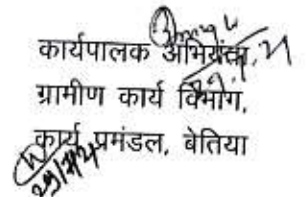 कार्यपालक अभियंता,
ग्रामीण कार्य विभाग,
कार्य प्रमंडल, बेतिया